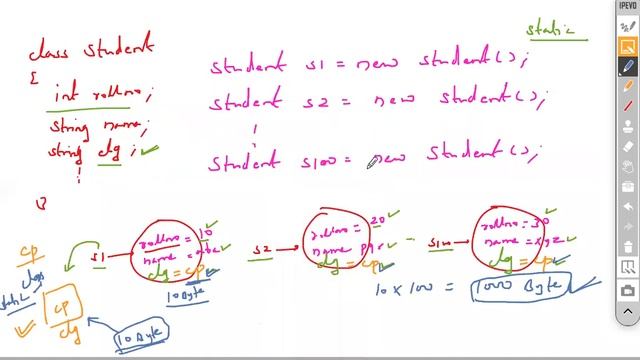 static
class Student
{
int rollno;
string name;
string clg;
}
student s1 = new student();
student s2 = new student();
student s100 = new student();
s1
rollno = 10
name = abc
clg = cp
10 Byte
s2
rollno = 20
name pqr
clg = cp
s100
rollno = 30
name = xyz
clg = cp
10 x 100 = 1000 Byte
cp
class
static
cp
clg
10 Byte
IPEVO